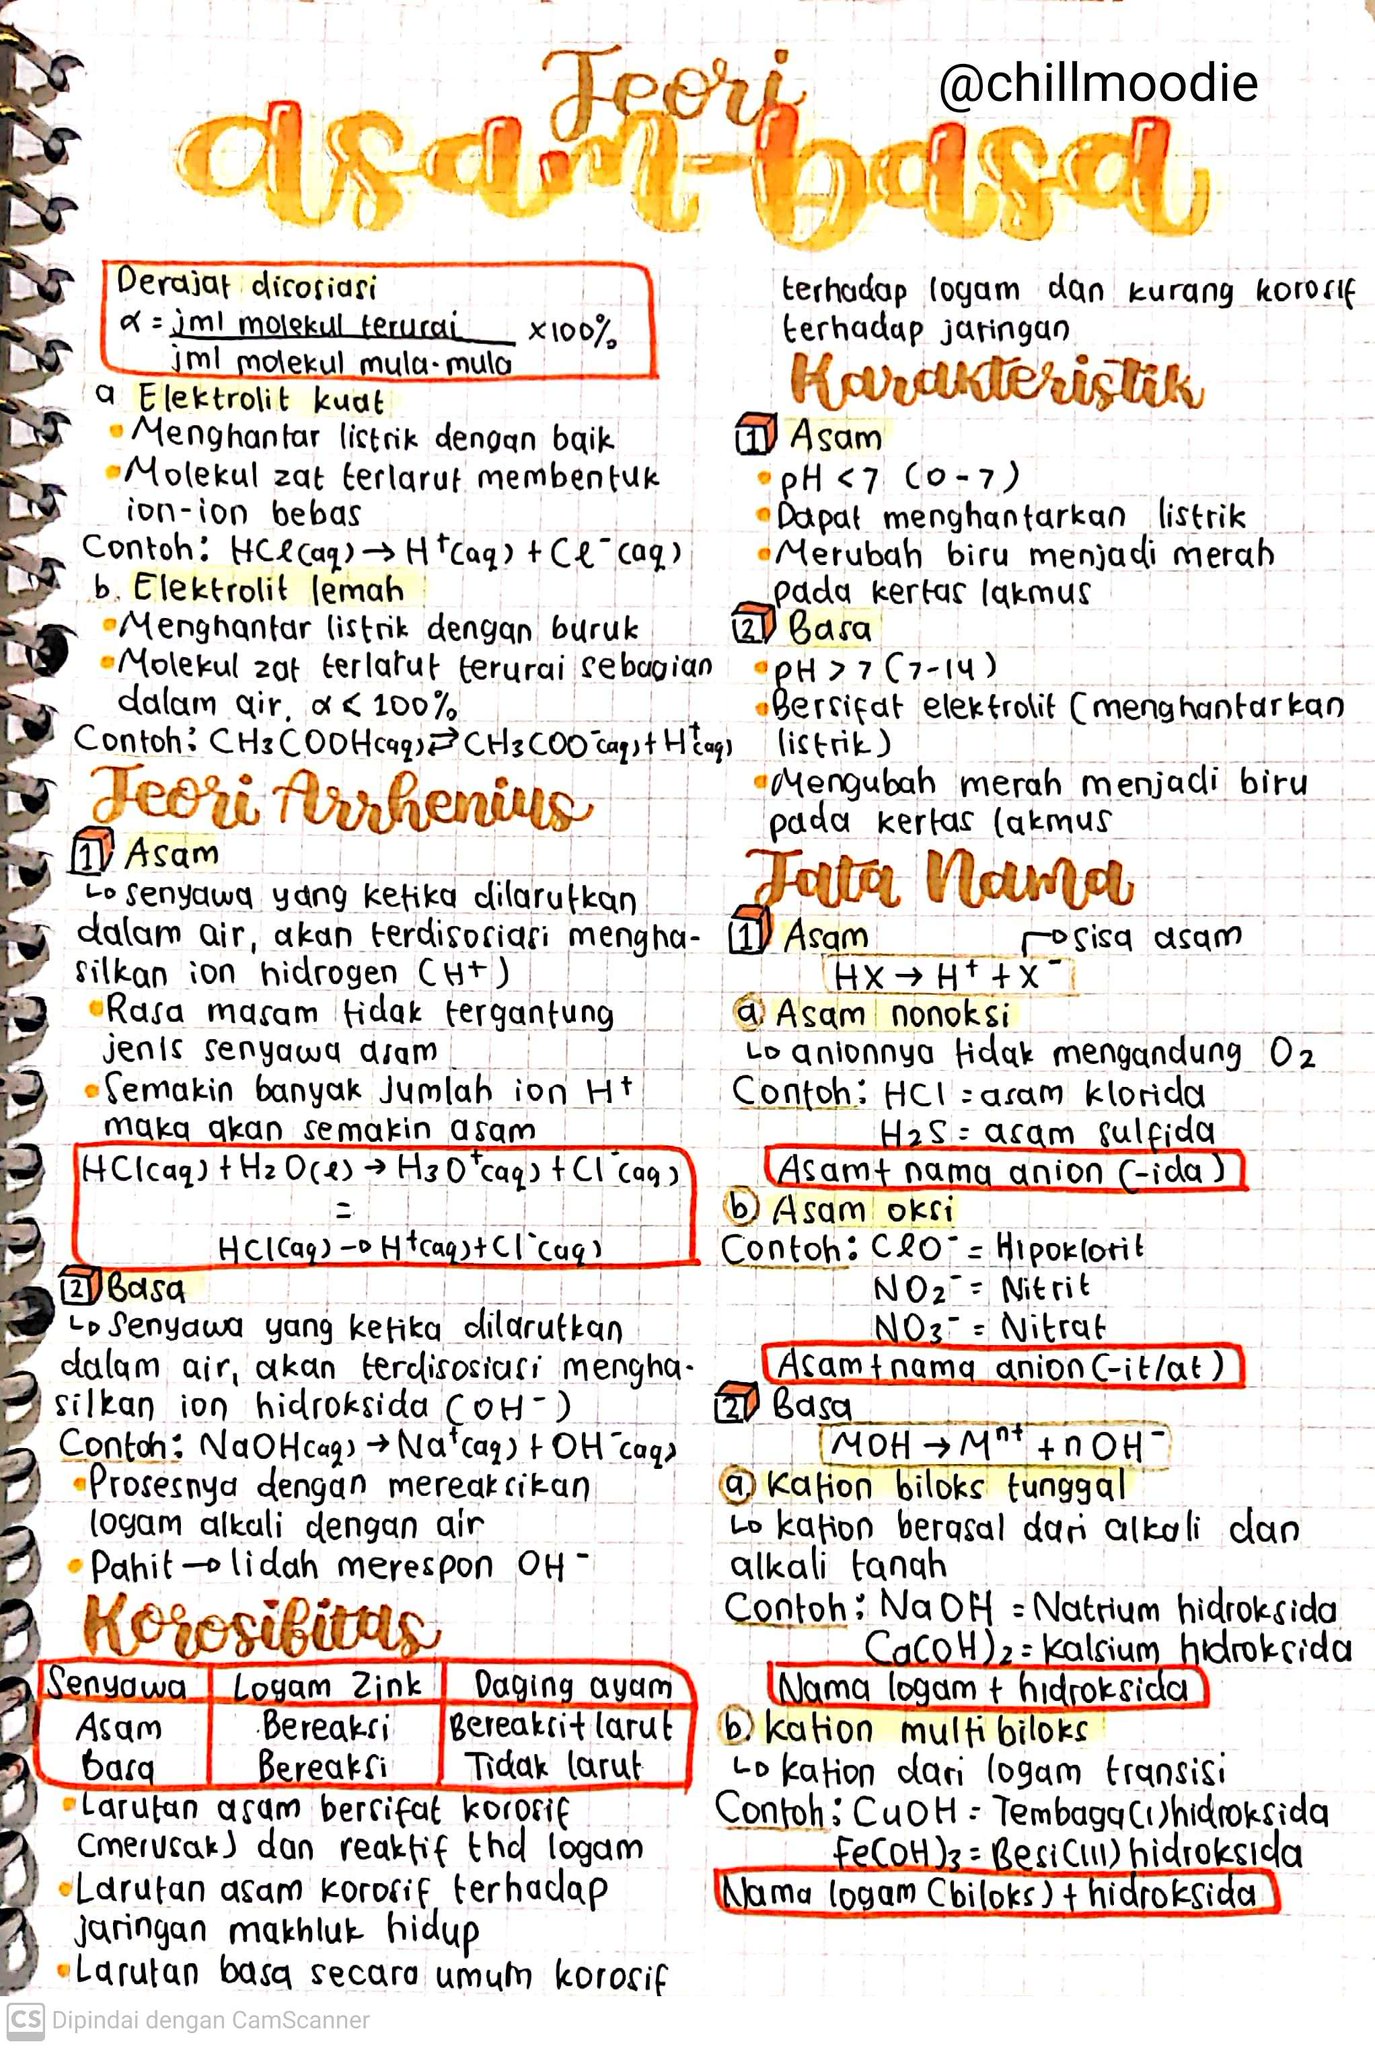 Teori
@chillmoodie
asam-basa
Derajat disosiasi
α = jml molekul terurai x100%
jml molekul mula-mula
a Elektrolit kuat
• Menghantar listrik dengan baik
• Molekul zat terlarut membentuk
ion-ion bebas
Contoh: HCl(aq) → H⁺(aq) + Cl⁻(aq)
b. Elektrolit lemah
• Menghantar listrik dengan buruk
• Molekul zat terlarut terurai sebagian
dalam air, α < 100%
Contoh: CH3COOH(aq) ⇄ CH3COO⁻(aq) + H⁺(aq)
Teori Arrhenius
1 Asam
↳ senyawa yang ketika dilarutkan
dalam air, akan terdisosiasi mengha-
silkan ion hidrogen (H+)
• Rasa masam tidak tergantung
jenis senyawa asam
• Semakin banyak jumlah ion H⁺
maka akan semakin asam
HCl(aq) + H2O(l) → H3O⁺(aq) + Cl⁻(aq)
=
HCl(aq) → H⁺(aq) + Cl⁻(aq)
2 Basa
↳ Senyawa yang ketika dilarutkan
dalam air, akan terdisosiasi mengha-
silkan ion hidroksida (OH⁻)
Contoh: NaOH(aq) → Na⁺(aq) + OH⁻(aq)
• Prosesnya dengan mereaksikan
logam alkali dengan air
• Pahit → lidah merespon OH⁻
Korosifitas
Senyawa Logam Zink Daging ayam
Asam Bereaksi Bereaksi+larut
Basa Bereaksi Tidak larut
• Larutan asam bersifat korosif
(merusak) dan reaktif thd logam
• Larutan asam korosif terhadap
jaringan makhluk hidup
• Larutan basa secara umum korosif
terhadap logam dan kurang korosif
terhadap jaringan
Karakteristik
1 Asam
• pH < 7 (0 - 7)
• Dapat menghantarkan listrik
• Merubah biru menjadi merah
pada kertas lakmus
2 Basa
• pH > 7 (7-14)
• Bersifat elektrolit (menghantarkan
listrik)
• Mengubah merah menjadi biru
pada kertas lakmus
Tata Nama
1 Asam → sisa asam
HX → H⁺ + X⁻
a Asam nonoksi
↳ anionnya tidak mengandung O2
Contoh: HCl = asam klorida
H2S = asam sulfida
Asam + nama anion (-ida)
b Asam oksi
Contoh: ClO⁻ = Hipoklorit
NO2⁻ = Nitrit
NO3⁻ = Nitrat
Asam + nama anion (-it/at)
2 Basa
MOH → Mⁿ⁺ + nOH⁻
a Kation biloks tunggal
↳ kation berasal dari alkali dan
alkali tanah
Contoh: NaOH = Natrium hidroksida
Ca(OH)2 = Kalsium hidroksida
Nama logam + hidroksida
b kation multi biloks
↳ kation dari logam transisi
Contoh: CuOH = Tembaga(I)hidroksida
Fe(OH)3 = Besi(III) hidroksida
Nama logam (biloks) + hidroksida
CS Dipindai dengan CamScanner